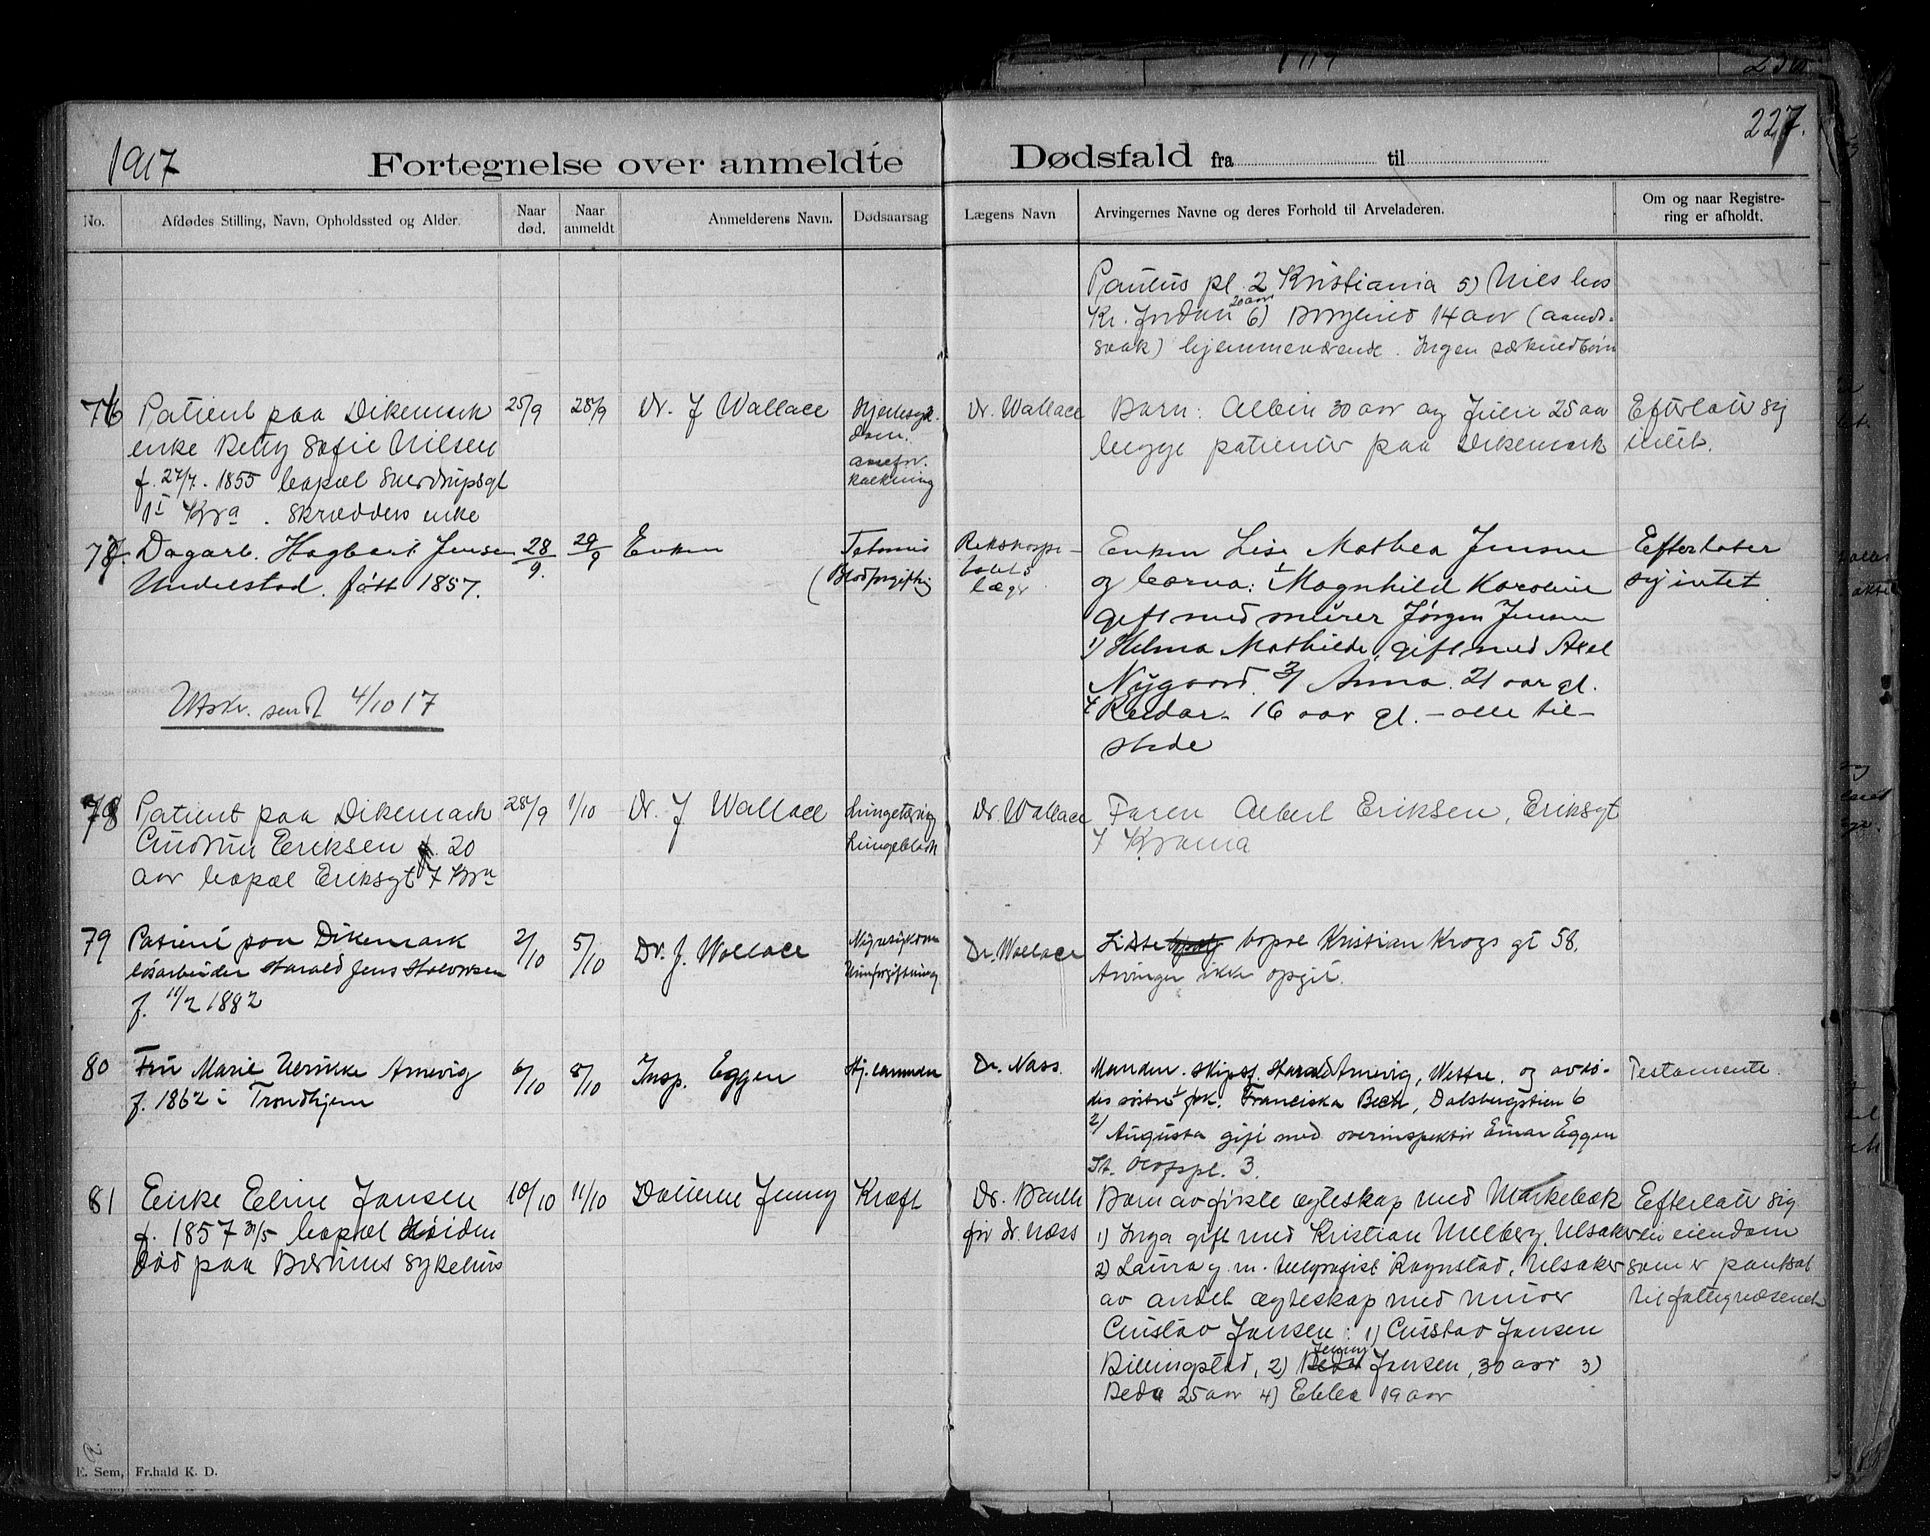 1917
227.
Fortegnelse over anmeldte Dødsfald fra til
No. Afdødes Stilling, Navn, Opholdssted og Alder. Naar død. Naar anmeldt Anmelderens Navn. Dødsaarsag Lægens Navn Arvingernes Navne og deres Forhold til Arveladeren. Om og naar Registrering er afholdt.
Paulus pl. 2 Kristiania 5) Nils hos
20 aar
Kr. Jordan 6) Borghild 14 aar (aands-
svak) hjemmeværende. Ingen særkuldbørn
76 Patient paa Dikemark
enke Betty Sofie Nilsen
f. 27/7. 1855 bopæl Sverdrupsgt
1I Kra. Skrædders enke
25/9
28/9
Dr. J Wallace
Hjertesyk-
dom.
aarefor-
kalkning
Dr. Wallace
Barn: Albin 30 aar og Julie 25 aar
begge patienter paa Dikemark
Efterlater sig
intet.
77. Dagarb. Hagbart Jensen
Underlstad. født 1857.
Utskr. sendt 4/10 17
28/9.
29/9
Enken
Tetanus
(Blodforgiftnig
Rikshospi-
talets
læge
Enken Lise Mathea Jensen
og barna: 1 Magnhild Karoline
gift med murer Jørgen Jensen
1) Helma Mathilde, gift med Axel
Nygaard. 3/ Anna. 21 aar gl.
4 Reidar. 16 aar gl. – alle til-
stede
Efterlater
sig intet
78 Patient paa Dikemark
Gudrun Eriksen f. 20
aar bopæl Eriksgt 7 Kra
28/9
1/10
Dr. J Wallace
Lungetæring
Lungeblødn
Dr. Wallace
Faren Albert Eriksen, Eriksgt
7 Krania
79 Patient paa Dikemark
løsarbeider Harald Jens Halvorsen
f. 11/2 1882
2/10
5/10
Dr. J. Wallace
Nyresykdom
Urinforgiftning
Dr. Wallace
Sidste bopæl bopæl Kristian Krogs gt 58.
Arvinger ikke opgit.
80 Fru Marie Ulrikke Arnevig
f. 1862 i Trondhjem
6/10
8/10
Insp. Eggen
Hj. lammelse
Dr. Næss.
Manden. skipsf. Harald Arnevig, Vettre. og avdø-
des søstre 1/ frk. Franciska Bech, Dalsbergstien 6
2/ Augusta gift med overinspektør Einar Eggen
St. Olafspl. 3
Testamente.
81 Enke Eline Jansen
f. 1857 31/5 bopæl Høiden
død paa Bærums sykehus
10/10
11/10
Datteren Jenny
Kræft
Dr. Barth
for dr. Næss
Barn av første ægteskap med Markebæk
1) Inga gift med Kristian Mulberg, Ulsaker
2) Laura g. m. telegrafist Ragnstad, Ulsaker
av andet ægteskap med murer
Gustav Jansen: 1) Gustav Jansen
Jenny
Billingstad, 2) Beda Jansen, 30 aar 3)
Beda 25 aar 4) Ebba 19 aar
Efterlater sig
en eiendom
som er pantsat
til fattigvæsenet
E. Sem, Fr.hald K. D.